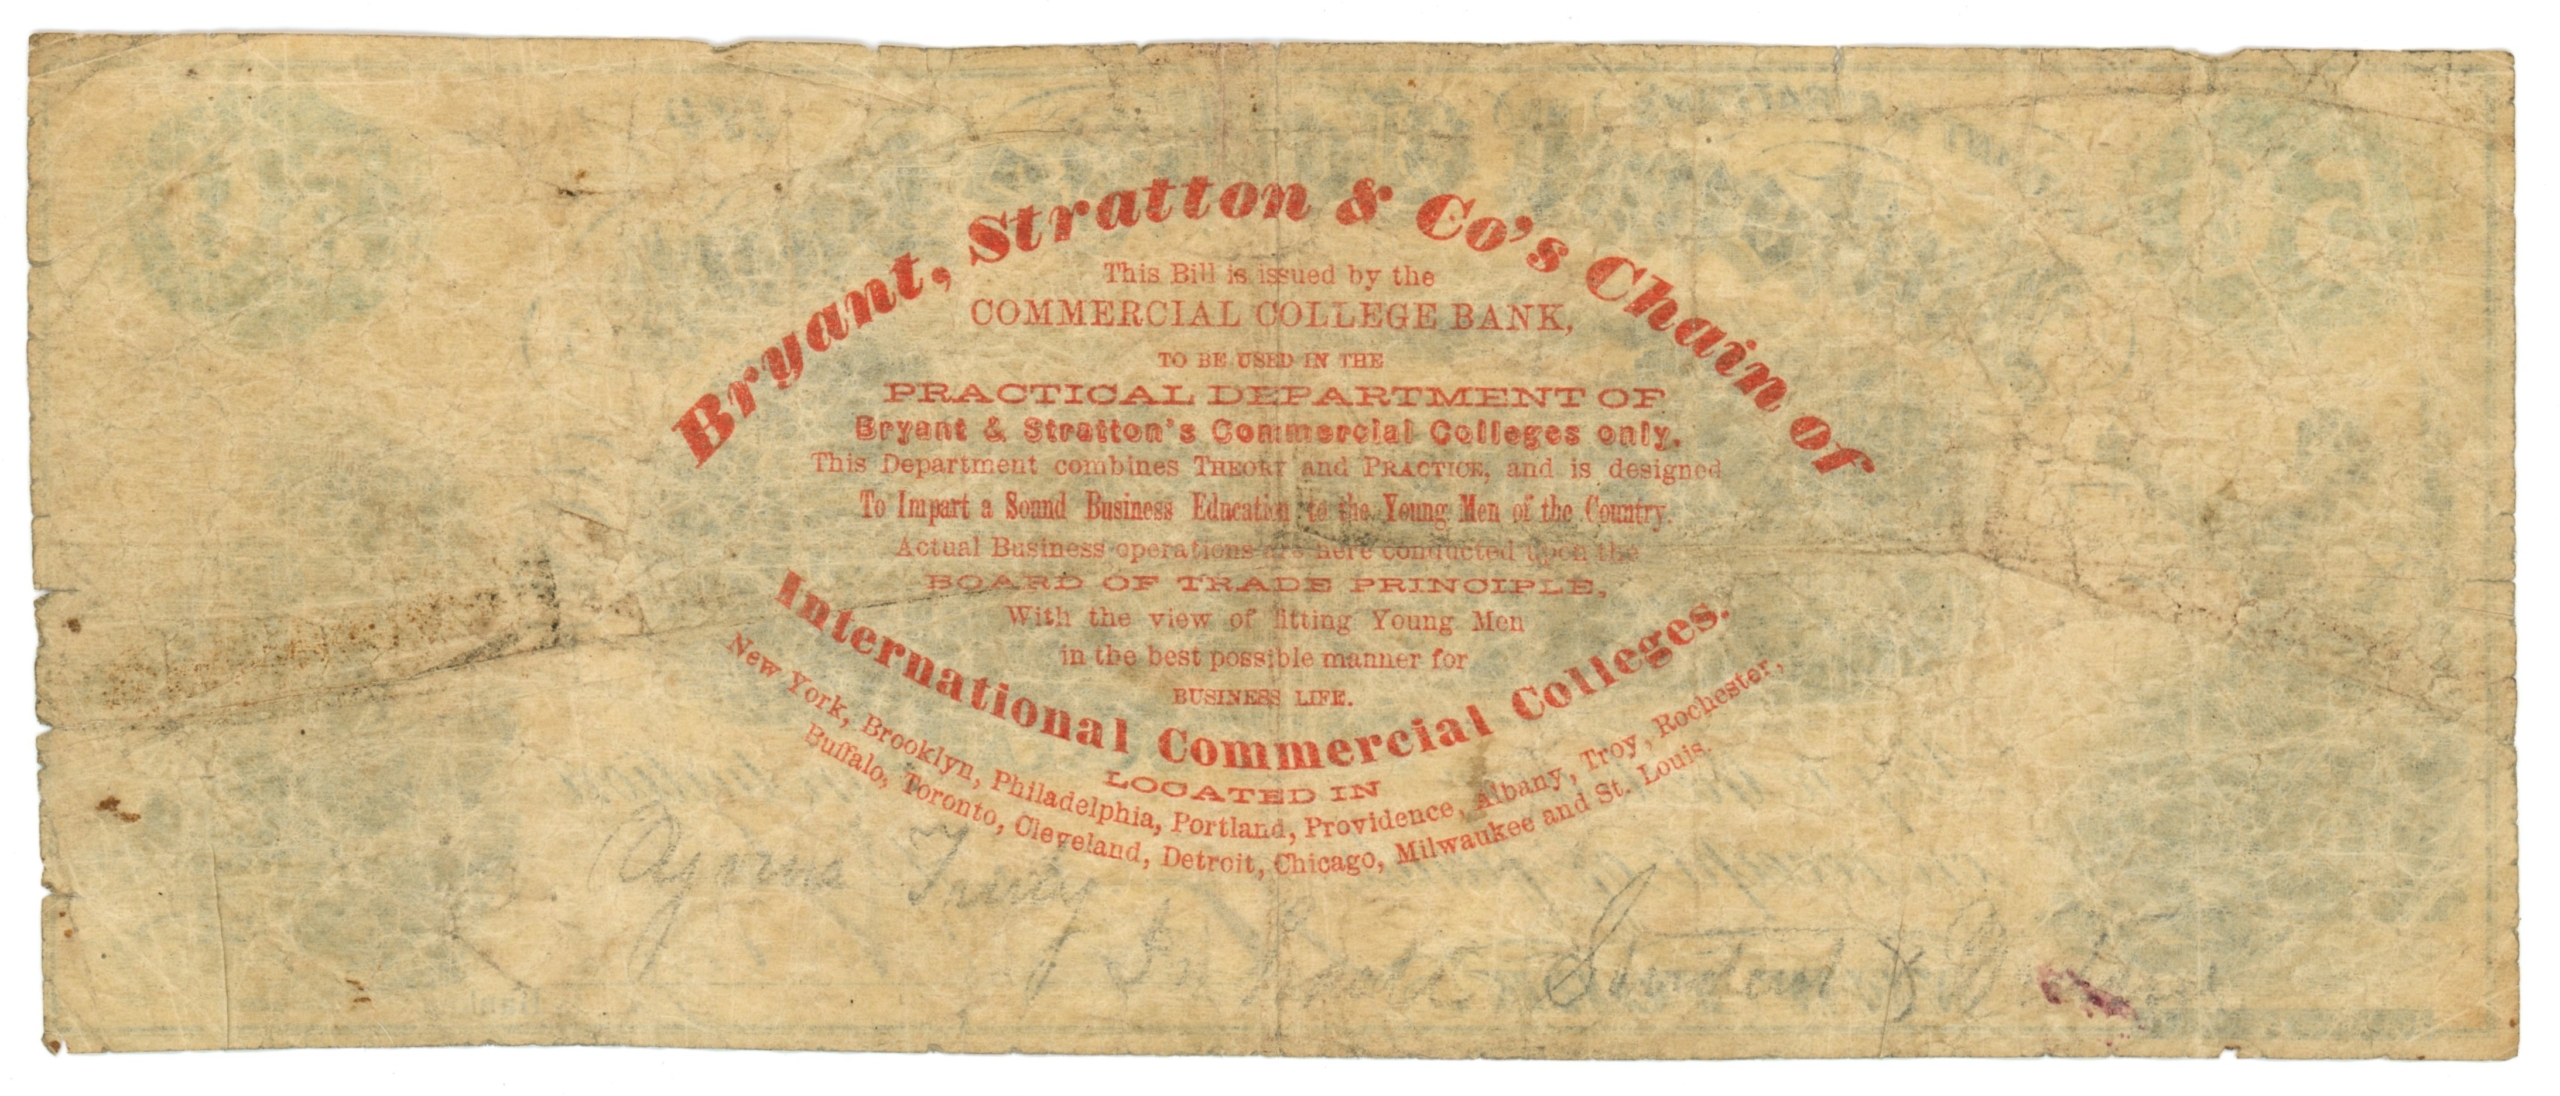 Bryant, Stratton & Co's Chain of
This Bill is issued by the
COMMERCIAL COLLEGE BANK,
TO BE USED IN THE
PRACTICAL DEPARTMENT OF
Bryant & Stratton's Commercial Colleges only.
This Department combines THEORY and PRACTICE, and is designed
To Impart a Sound Business Education to the Young Men of the Country.
Actual Business operations are here conducted upon the
BOARD OF TRADE PRINCIPLE,
With the view of fitting Young Men
in the best possible manner for
BUSINESS LIFE.
International Commercial Colleges.
LOCATED IN
New York, Brooklyn, Philadelphia, Portland, Providence, Albany, Troy, Rochester,
Buffalo, Toronto, Cleveland, Detroit, Chicago, Milwaukee and St. Louis.